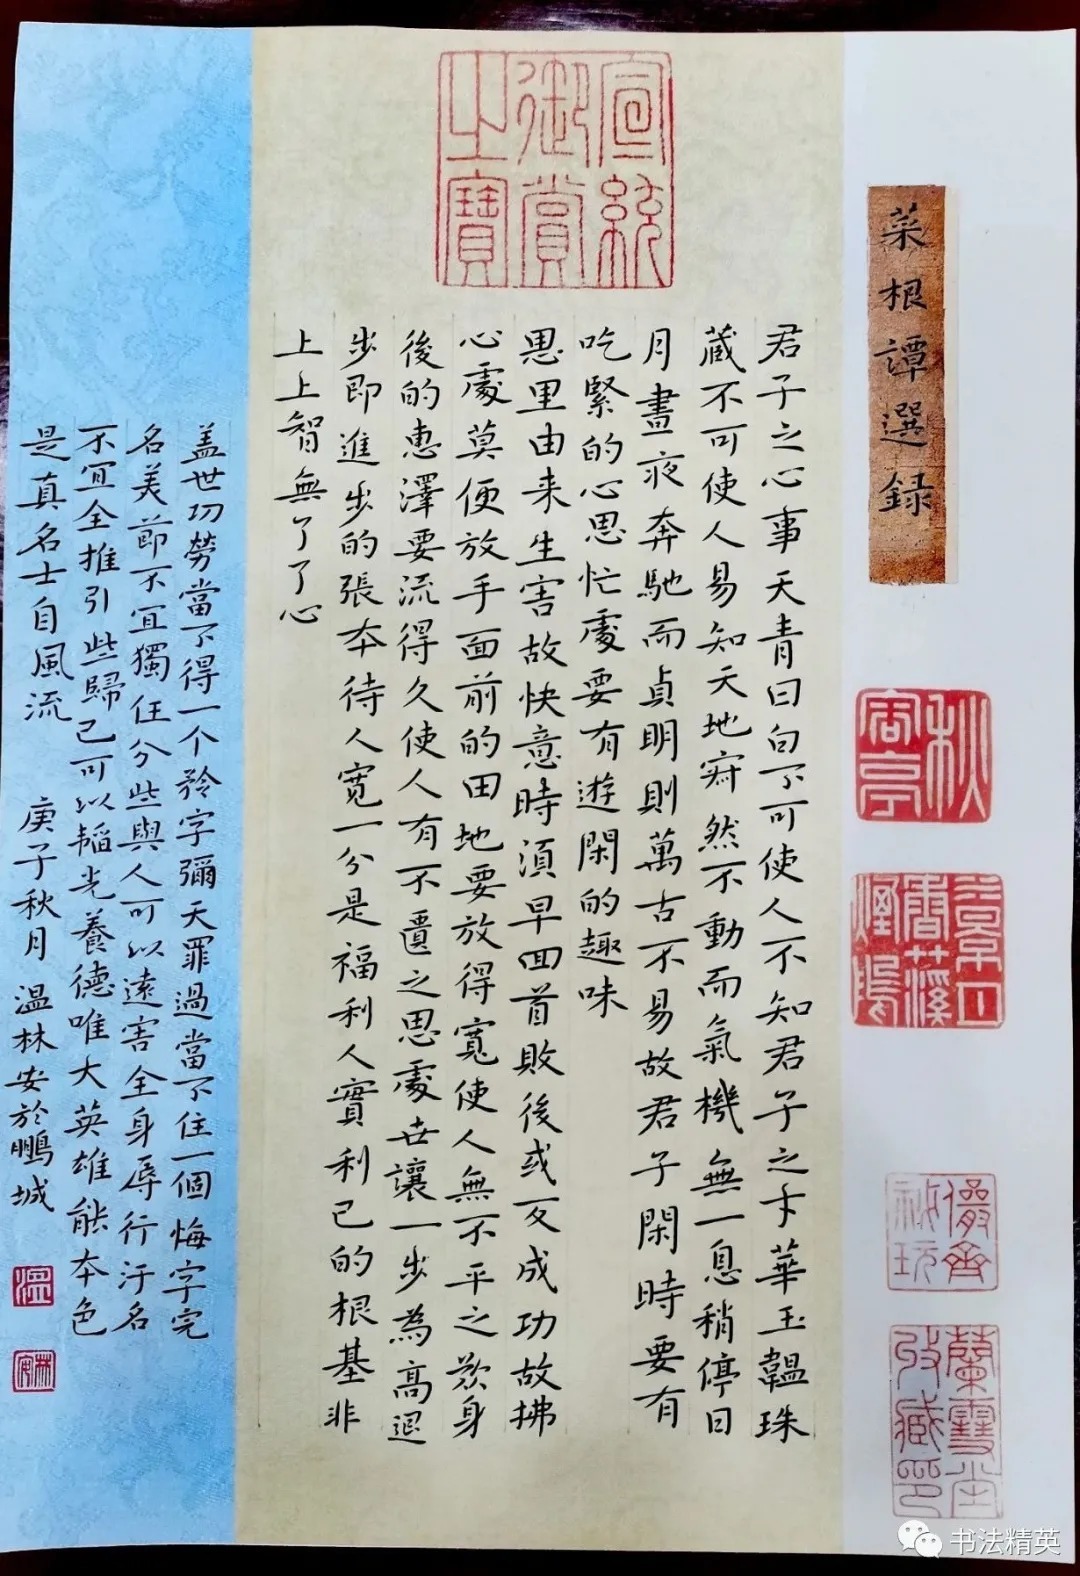 菜根譚選録
宣統御賞之寶
君子之心事天青日白不可使人不知君子之才華玉韞珠
藏不可使人易知天地寂然不動而氣機無一息稍停日
月晝夜奔馳而貞明則萬古不易故君子閑時要有
吃緊的心思忙處要有遊閑的趣味
恩里由来生害故快意時須早回首敗後或反成功故拂
心處莫便放手面前的田地要放得寬使人無不平之歎身
後的惠澤要流得久使人有不匱之思處世讓一步為高退
步即進步的張本待人寬一分是福利人實利己的根基非
上上智無了了心
盖世功勞當不得一个矜字彌天罪過當不住一個悔字完
名美節不宜獨任分些與人可以遠害全身辱行汙名
不宜全推引些歸己可以韜光養德唯大英雄能本色
是真名士自風流
庚子秋月溫林安於鵬城
溫
林安
蘭雪堂收藏印
书法精英